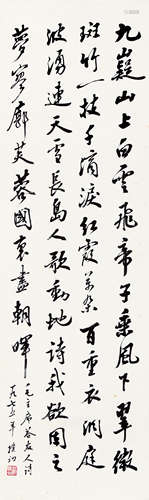 九嶷山上白雲飛帝子乘風下翠微
斑竹一枝千滴淚紅霞萬朵百重衣洞庭
波湧連天雪長島人歌動地詩我欲因之
夢寥廓芙蓉國裏盡朝暉
毛主席答友人詩
一九七五年 樸初